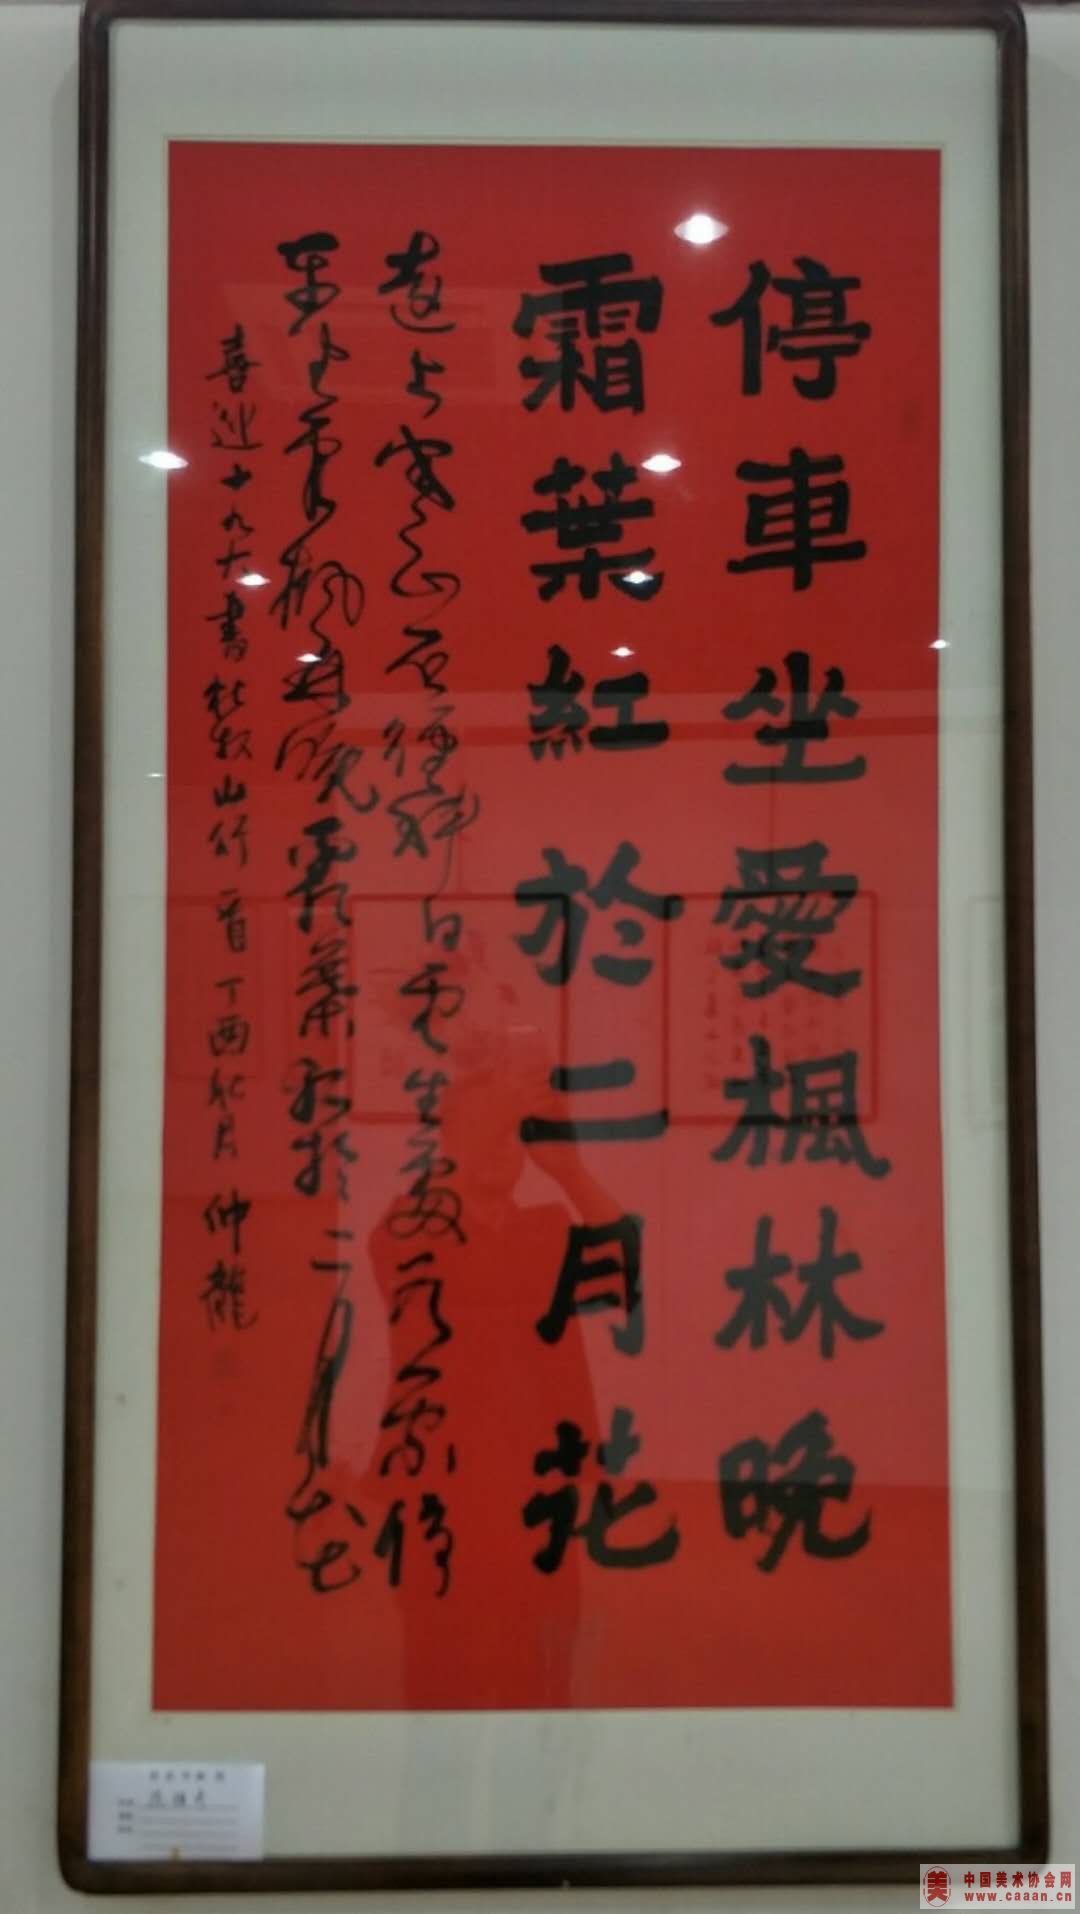 停車坐愛楓林晚
霜葉紅於二月花
遠上寒山石徑斜白雲生處有人家停
車坐愛楓林晚霜葉紅於二月花
喜迎十九大書杜牧山行一首丁酉秋月仲龍
中国美术协会网
www.caaan.cn
美